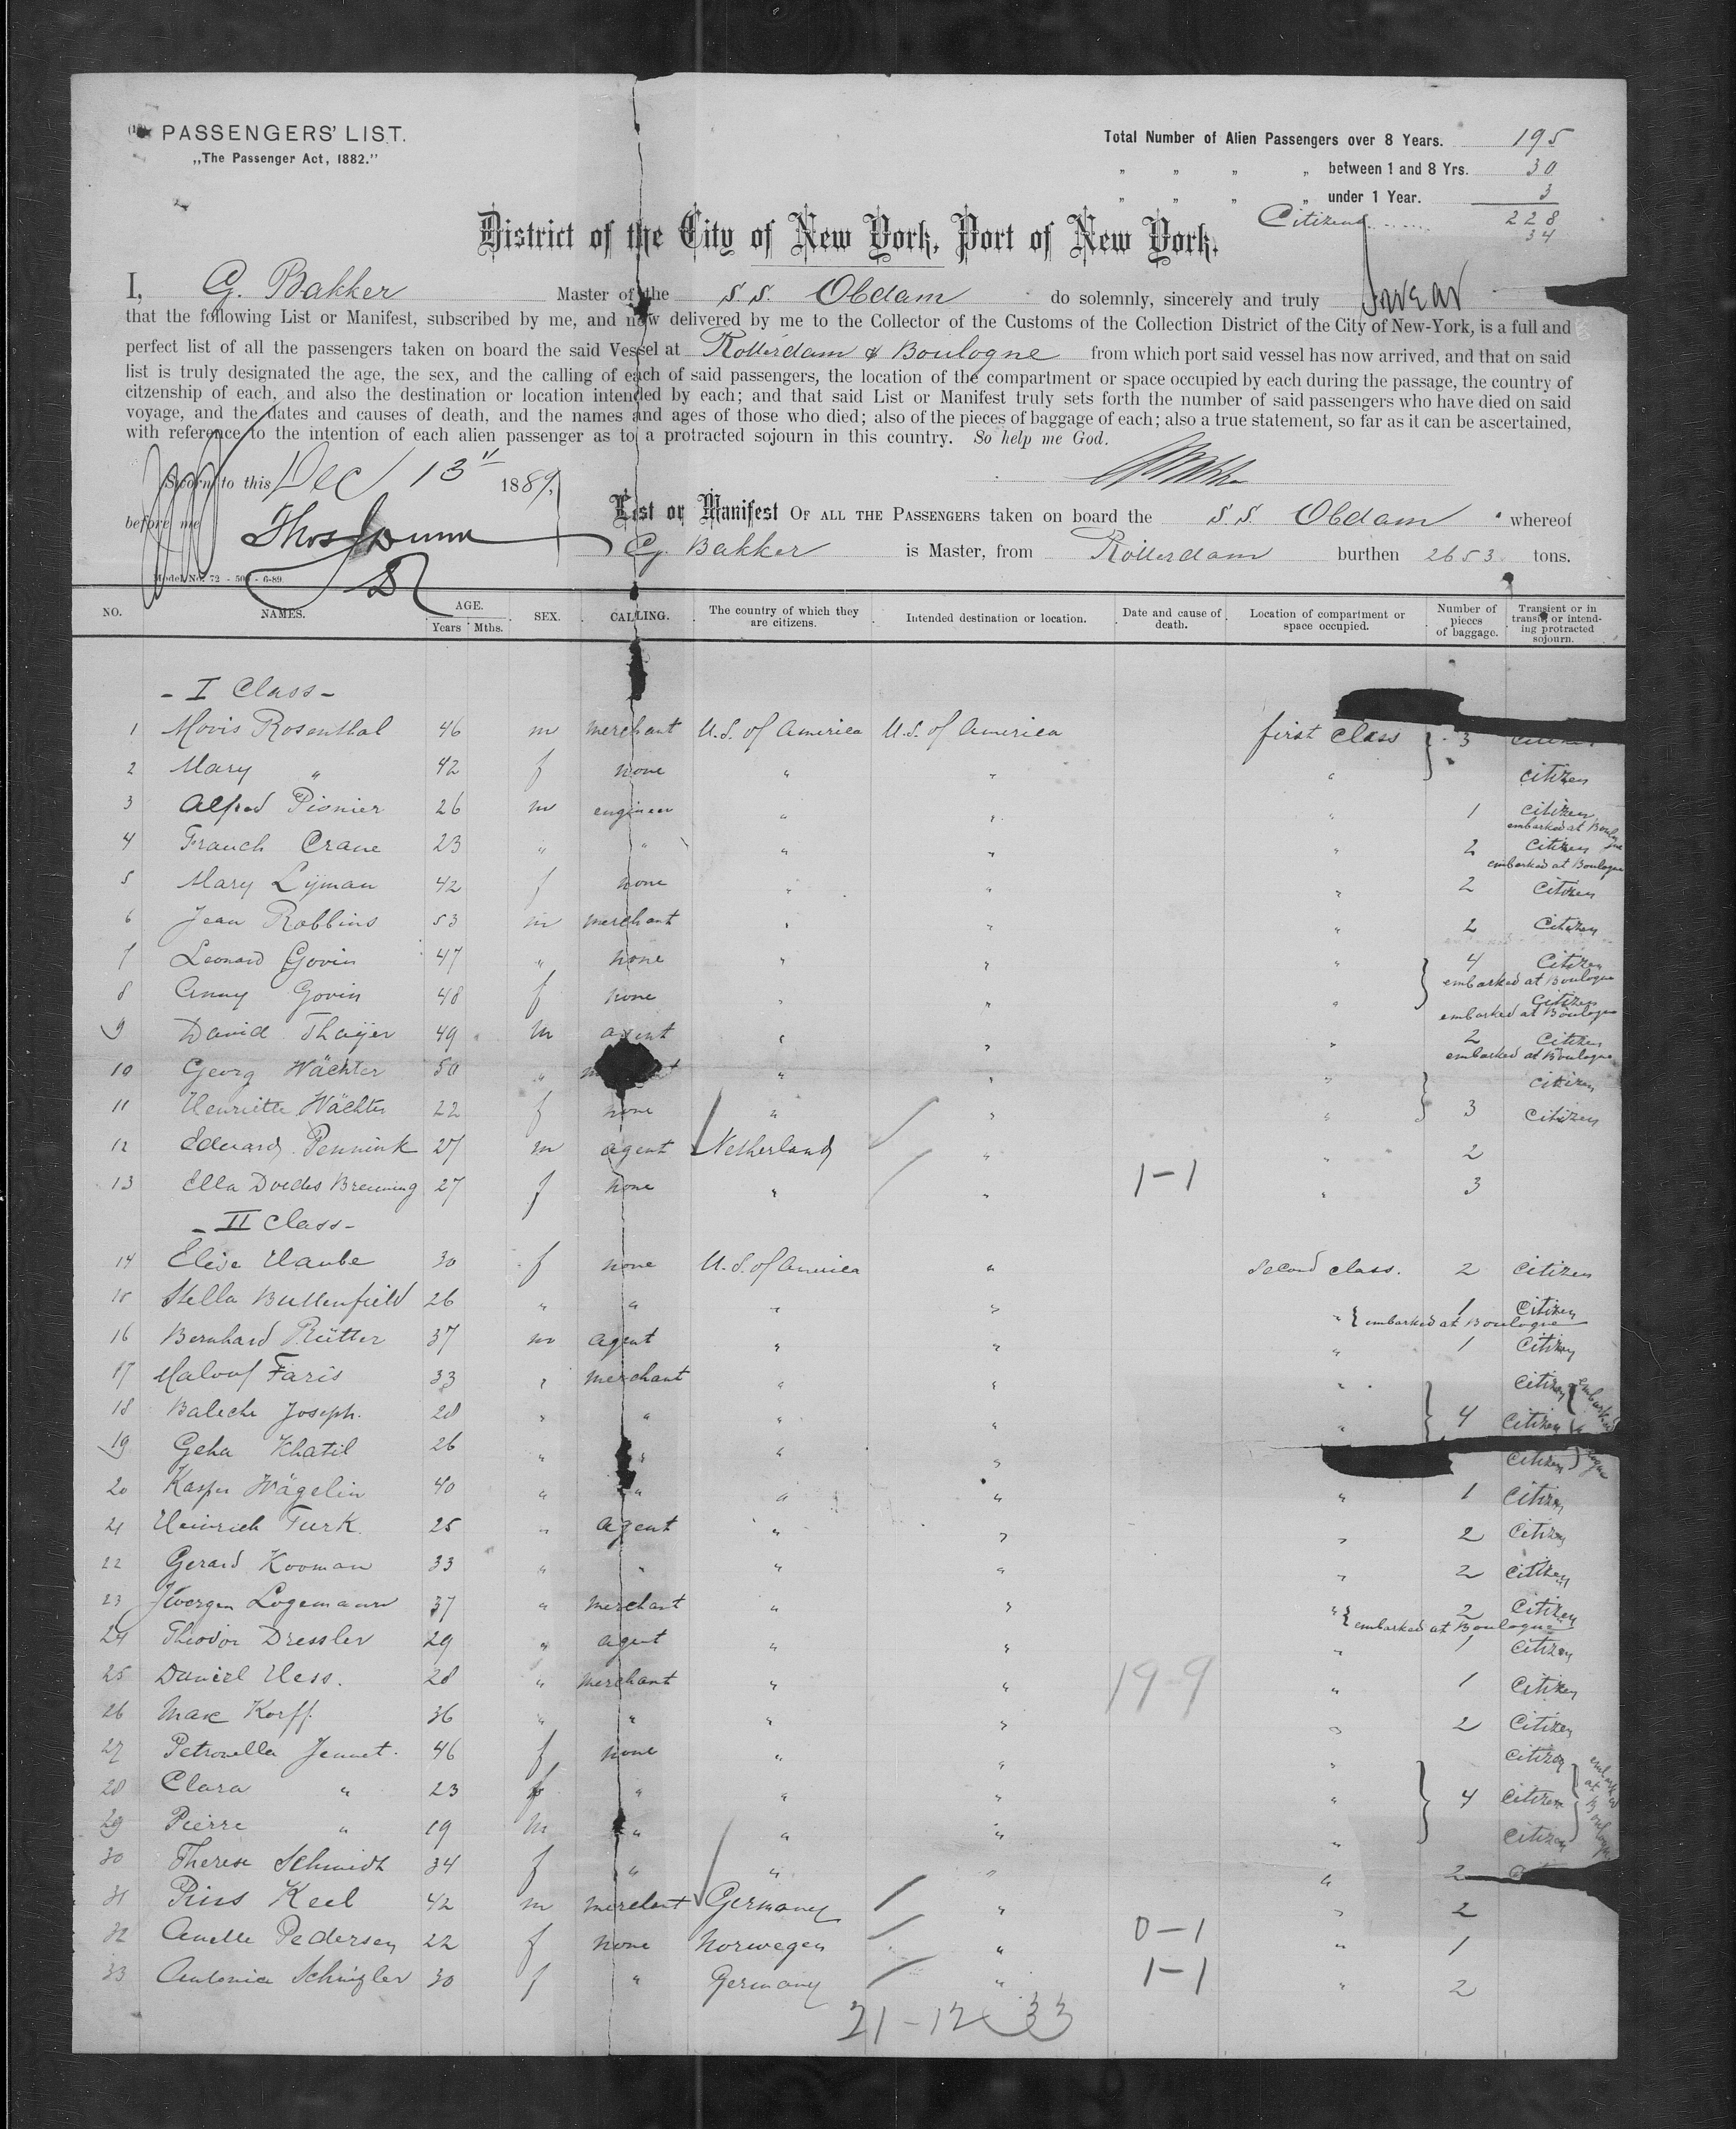 PASSENGERS' LIST.
„The Passenger Act, 1882."
Total Number of Alien Passengers over 8 Years. 195
„ „ „ „ between 1 and 8 Yrs. 30
„ „ „ „ under 1 Year. 3
Citizens 228
34
District of the City of New York, Port of New York.
I, G. Bakker Master of the S.S. Obdam do solemnly, sincerely and truly swear
that the following List or Manifest, subscribed by me, and now delivered by me to the Collector of the Customs of the Collection District of the City of New-York, is a full and
perfect list of all the passengers taken on board the said Vessel at Rotterdam & Boulogne from which port said vessel has now arrived, and that on said
list is truly designated the age, the sex, and the calling of each of said passengers, the location of the compartment or space occupied by each during the passage, the country of
citzenship of each, and also the destination or location intended by each; and that said List or Manifest truly sets forth the number of said passengers who have died on said
voyage, and the dates and causes of death, and the names and ages of those who died; also of the pieces of baggage of each; also a true statement, so far as it can be ascertained,
with reference to the intention of each alien passenger as to a protracted sojourn in this country. So help me God.
Sworn to this Dec 13" 1889.
before me Thos Dunn
List or Manifest OF ALL THE PASSENGERS taken on board the S.S. Obdam whereof
G. Bakker is Master, from Rotterdam burthen 2653 tons.
Model No. 72 - 500 - 6-89.
NO. NAMES. AGE. Years Mths. SEX. CALLING. The country of which they are citizens. Intended destination or location. Date and cause of death. Location of compartment or space occupied. Number of pieces of baggage. Transient or in transit or intending protracted sojourn.
- I Class -
1 Moris Rosenthal 46 m merchant U.S. of America U.S. of America first class 3 citizen
2 Mary " 42 f none " " " citizen
3 Alfred Pionier 26 m engineer " " " 1 citizen embarked at Boulogne
4 Franch Crane 23 " " " " " 2 Citizen embarked at Boulogne
5 Mary Lyman 42 f none " " " 2 Citizen
6 Jean Robbins 53 m merchant " " " 2 Citizen
7 Leonard Govin 47 " none " " " 4 Citizen embarked at Boulogne
8 Anny Govin 48 f none " " " Citizen embarked at Boulogne
9 David Thaijer 49 m agent " " " 2 Citizen embarked at Boulogne
10 Georg Wächter 50 " " " " citizen
11 Henriette Wächter 22 f none " " " 3 Citizen
12 Eduard Pennink 27 m agent Netherland " " 2
13 Ella Doedes Breuning 27 f none " " 1-1 " 3
- II Class -
14 Elise Haube 30 f none U.S. of America " second class. 2 citizen
15 Stella Buttenfield 26 " " " " " 1 Citizen embarked at Boulogne
16 Bernhard Rütter 37 m agent " " " 1 Citizen
17 Malouf Faris 33 " merchant " " " Citizen embarked
18 Baleche Joseph. 28 " " " " " 4 Citizen
19 Geha Khatil 26 " " " " Citizen
20 Kasper Wägelin 40 " " " " " 1 Citizen
21 Heinrich Turk 25 " agent " " " 2 Citizen
22 Gerard Kooman 33 " " " " " 2 Citizen
23 Juergen Logemann 37 " merchant " " " 2 Citizen embarked at Boulogne
24 Theodor Dressler 29 " agent " " " 1 Citizen
25 Daniel Hess. 28 " merchant " " 19-9 " 1 Citizen
26 Max Korff. 36 " " " " " 2 Citizen
27 Petronella Jennet. 46 f none " " " Citizen
28 Clara " 23 f " " " " 4 Citizen embarked at Boulogne
29 Pierre " 19 m " " " " Citizen
30 Therese Schmidt 34 f " " " " 2
31 Pius Keel 42 m merchant Germany " " 2
32 Anette Pedersen 22 f none Norwegen " 0-1 " 1
33 Antonia Schinzler 30 f " Germany " 1-1 " 2
21-12 33